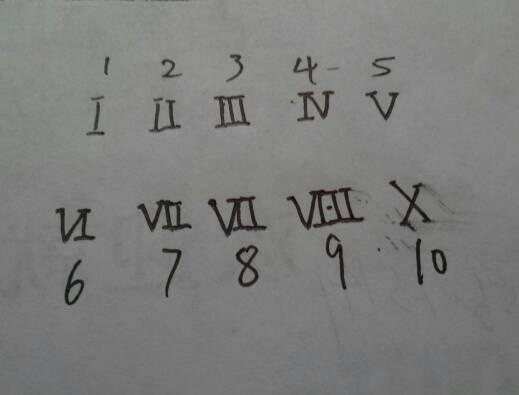 1 2 3 4 5
I II III IV V
VI VII VII VIII X
6 7 8 9 10